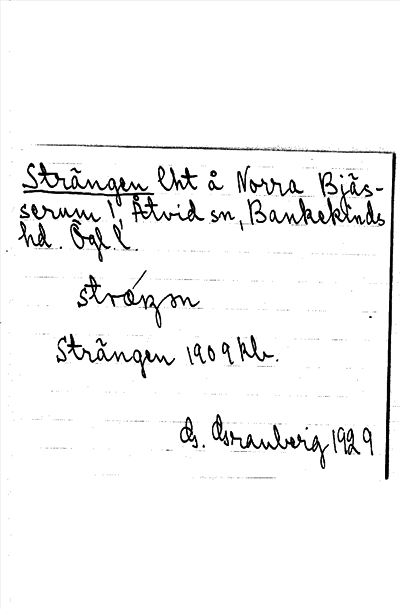 Strängen lht å Norra Bjäs-
serum 1, Åtvid sn, Bankekinds
hd. Ögl. l.
strä́ŋən
Strängen 1909 kb.
G. Granberg 1929